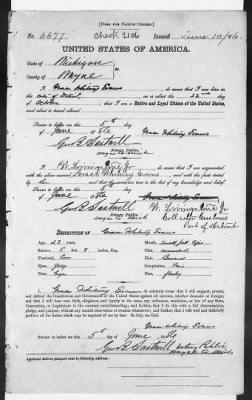 [FORM FOR NATIVE CITIZEN.]
No. 6677. Check 2106 Issued June 10/86
UNITED STATES OF AMERICA.
State of Michigan
County of Wayne
I, Evan Whiting Evans do swear that I was born in
the City of Detroit, on or about the 22nd day
of October that I am a Native and Loyal Citizen of the United States,
and about to travel abroad
Sworn to before me, this 5th
day of June 1886 Evan Whiting Evans
Geo. E. Sartwell
Notary Public
I, W. Livingstone Jr do swear that I am acquainted
with the above-named Evan Whiting Evans, and with the facts stated
by him, and that the same are true to the best of my knowledge and belief.
Sworn to before me, this 5th
day of June 1886
Geo. E. Sartwell W. Livingstone Jr
Notary Public Collector Customs
Port of Detroit
DESCRIPTION OF Evan Whiting Evans
Age
Stature, 5 Feet Inches, Eng.
Forehead, Low
Eyes, Gray
Nose,
Mouth,
Chin,
Hair, Brown
Complexion, Fair
Face,
I, Evan Whiting Evans do solemnly swear that I will support, protect,
and defend the Constitution and Government of the United States against all enemies, whether domestic or foreign;
and that I will bear true faith, allegiance, and loyalty to the same, any ordinance, resolution, or law of any State,
Convention, or Legislature to the contrary notwithstanding; and further, that I do this with a full determination,
pledge, and purpose, without any mental reservation or evasion whatsoever; and further, that I will well and faithfully
perform all the duties which may be required of me by law: So help me God.
Evan Whiting Evans
Sworn to before me, this 5th
day of June 1886
Geo. E. Sartwell Notary Public
Wayne Co. Mich.